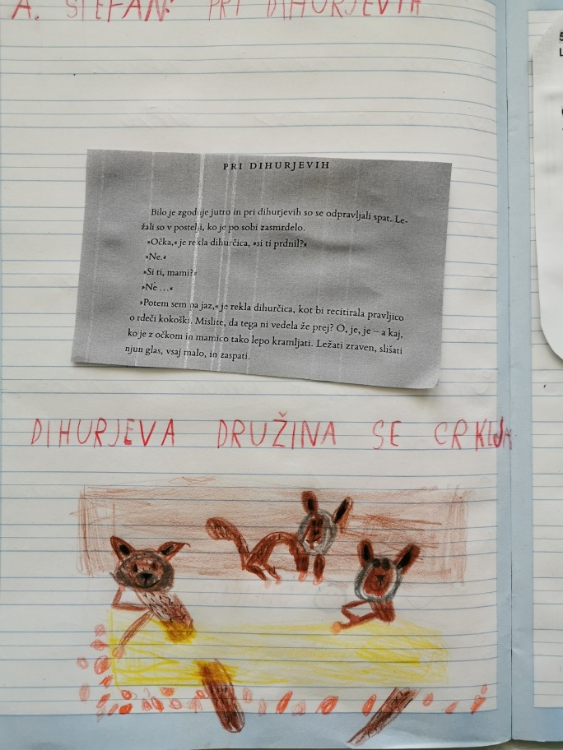 A. ŠTEFAN: PRI DIHURJEVIH
PRI DIHURJEVIH
Bilo je zgodnje jutro in pri dihurjevih so se odpravljali spat. Le-
žali so v postelji, ko je po sobi zasmrdelo.
»Očka,« je rekla dihurčica, »si ti prdnil?«
»Ne.«
»Si ti, mami?«
»Ne …«
»Potem sem pa jaz,« je rekla dihurčica, kot bi recitirala pravljico
o rdeči kokoški. Mislite, da tega ni vedela že prej? O, je, je – a kaj,
ko je z očkom in mamico tako lepo kramljati. Ležati zraven, slišati
njun glas, vsaj malo, in zaspati.
DIHURJEVA DRUŽINA SE CRKLJA